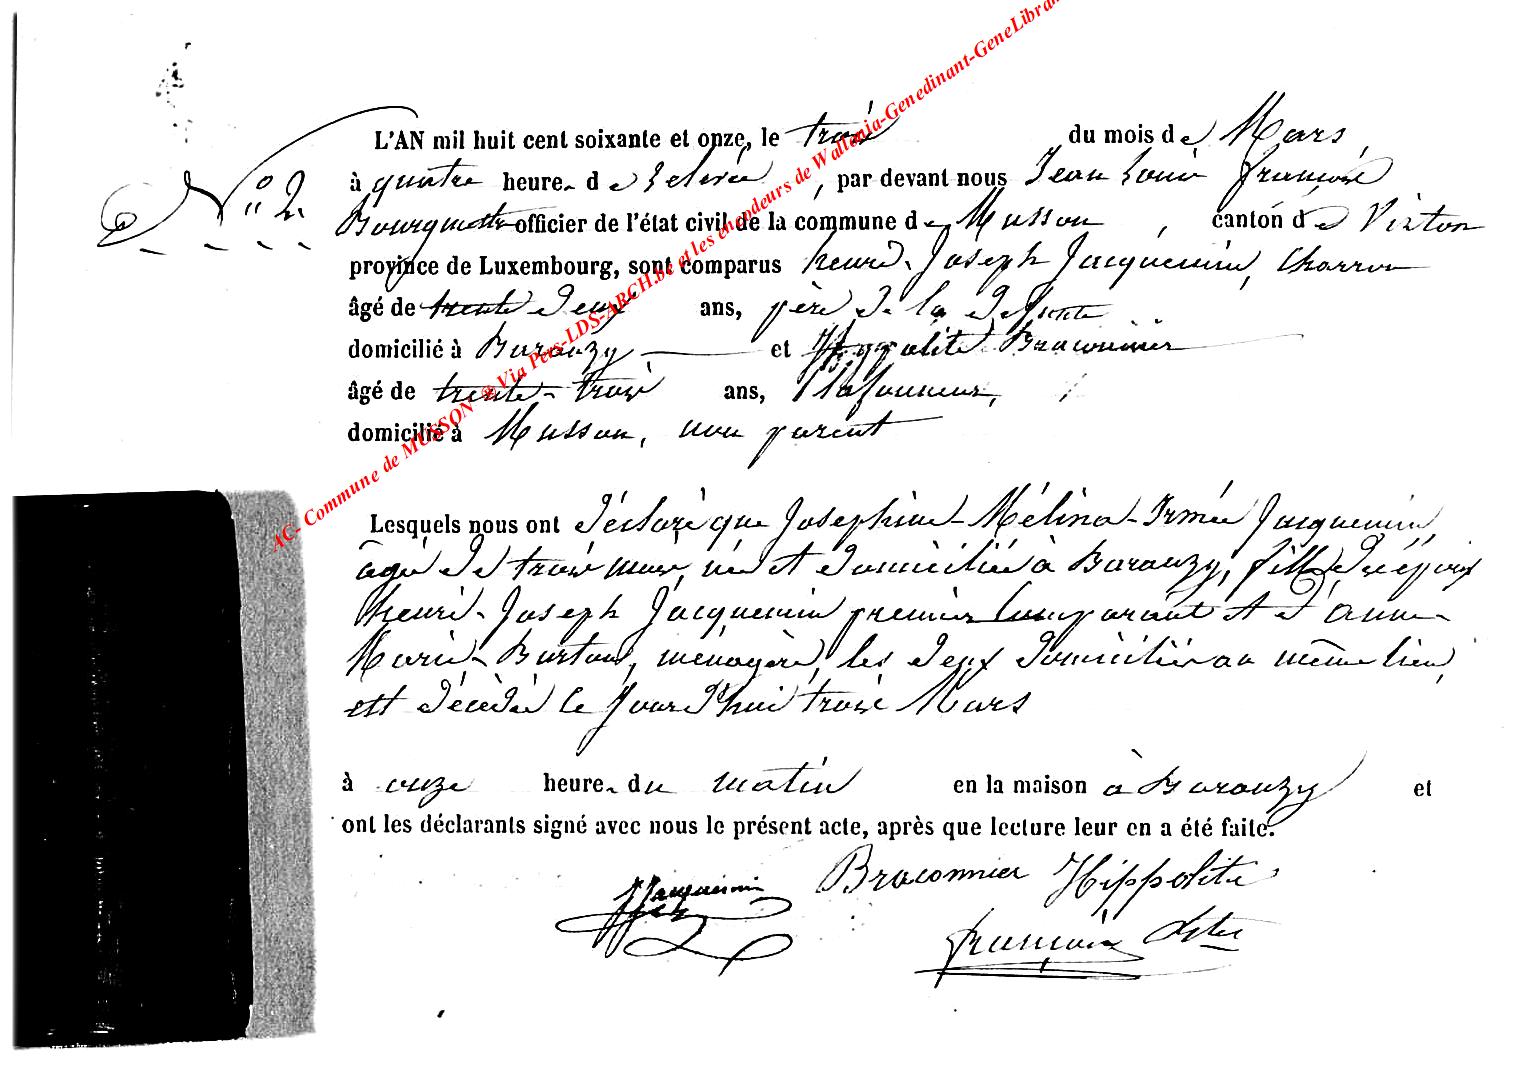 N° 2
L'AN mil huit cent soixante et onze, le trois du mois de Mars,
à quatre heure de relevée, par devant nous Jean Louis François
Bourguette officier de l'état civil de la commune de Musson, canton de Virton
province de Luxembourg, sont comparus henri-Joseph Jacquemin, Charron
âgé de trente deux ans, père de la défunte
domicilié à Baranzy, et Hyppolite Braconnier
âgé de trente-trois ans, Plafonneur,
domicilié à Musson, non parent
Lesquels nous ont déclaré que Joséphine-Mélina-Irmée Jacquemin,
âgée de trois mois, née et domiciliée à Baranzy, fille des époux
henri-Joseph Jacquemin premier Comparant et d'anne-
Marie-Burton, ménagère, les deux domiciliés au même lieu,
est décédée ce Jourd'hui trois Mars
à onze heure du matin en la maison à Baranzy et
ont les déclarants signé avec nous le présent acte, après que lecture leur en a été faite.
Jacquemin Braconnier Hippolite
françois
AC- Commune de MUSSON ® Via Pers-LDS-ARCH.be et les encodeurs de Wallonia-Genedinant-GeneLibran